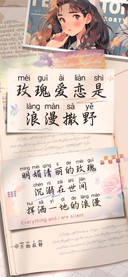 méi guī ài liàn shì
玫瑰爱恋是
làng màn sā yě
浪漫撒野
míng mèi qīng lì de méi guī
明媚清丽的玫瑰
chén nì zài shì jiān
沉溺在世间
huī sǎ yí dì de làng màn
挥洒一地的浪漫
Everything and I are silent